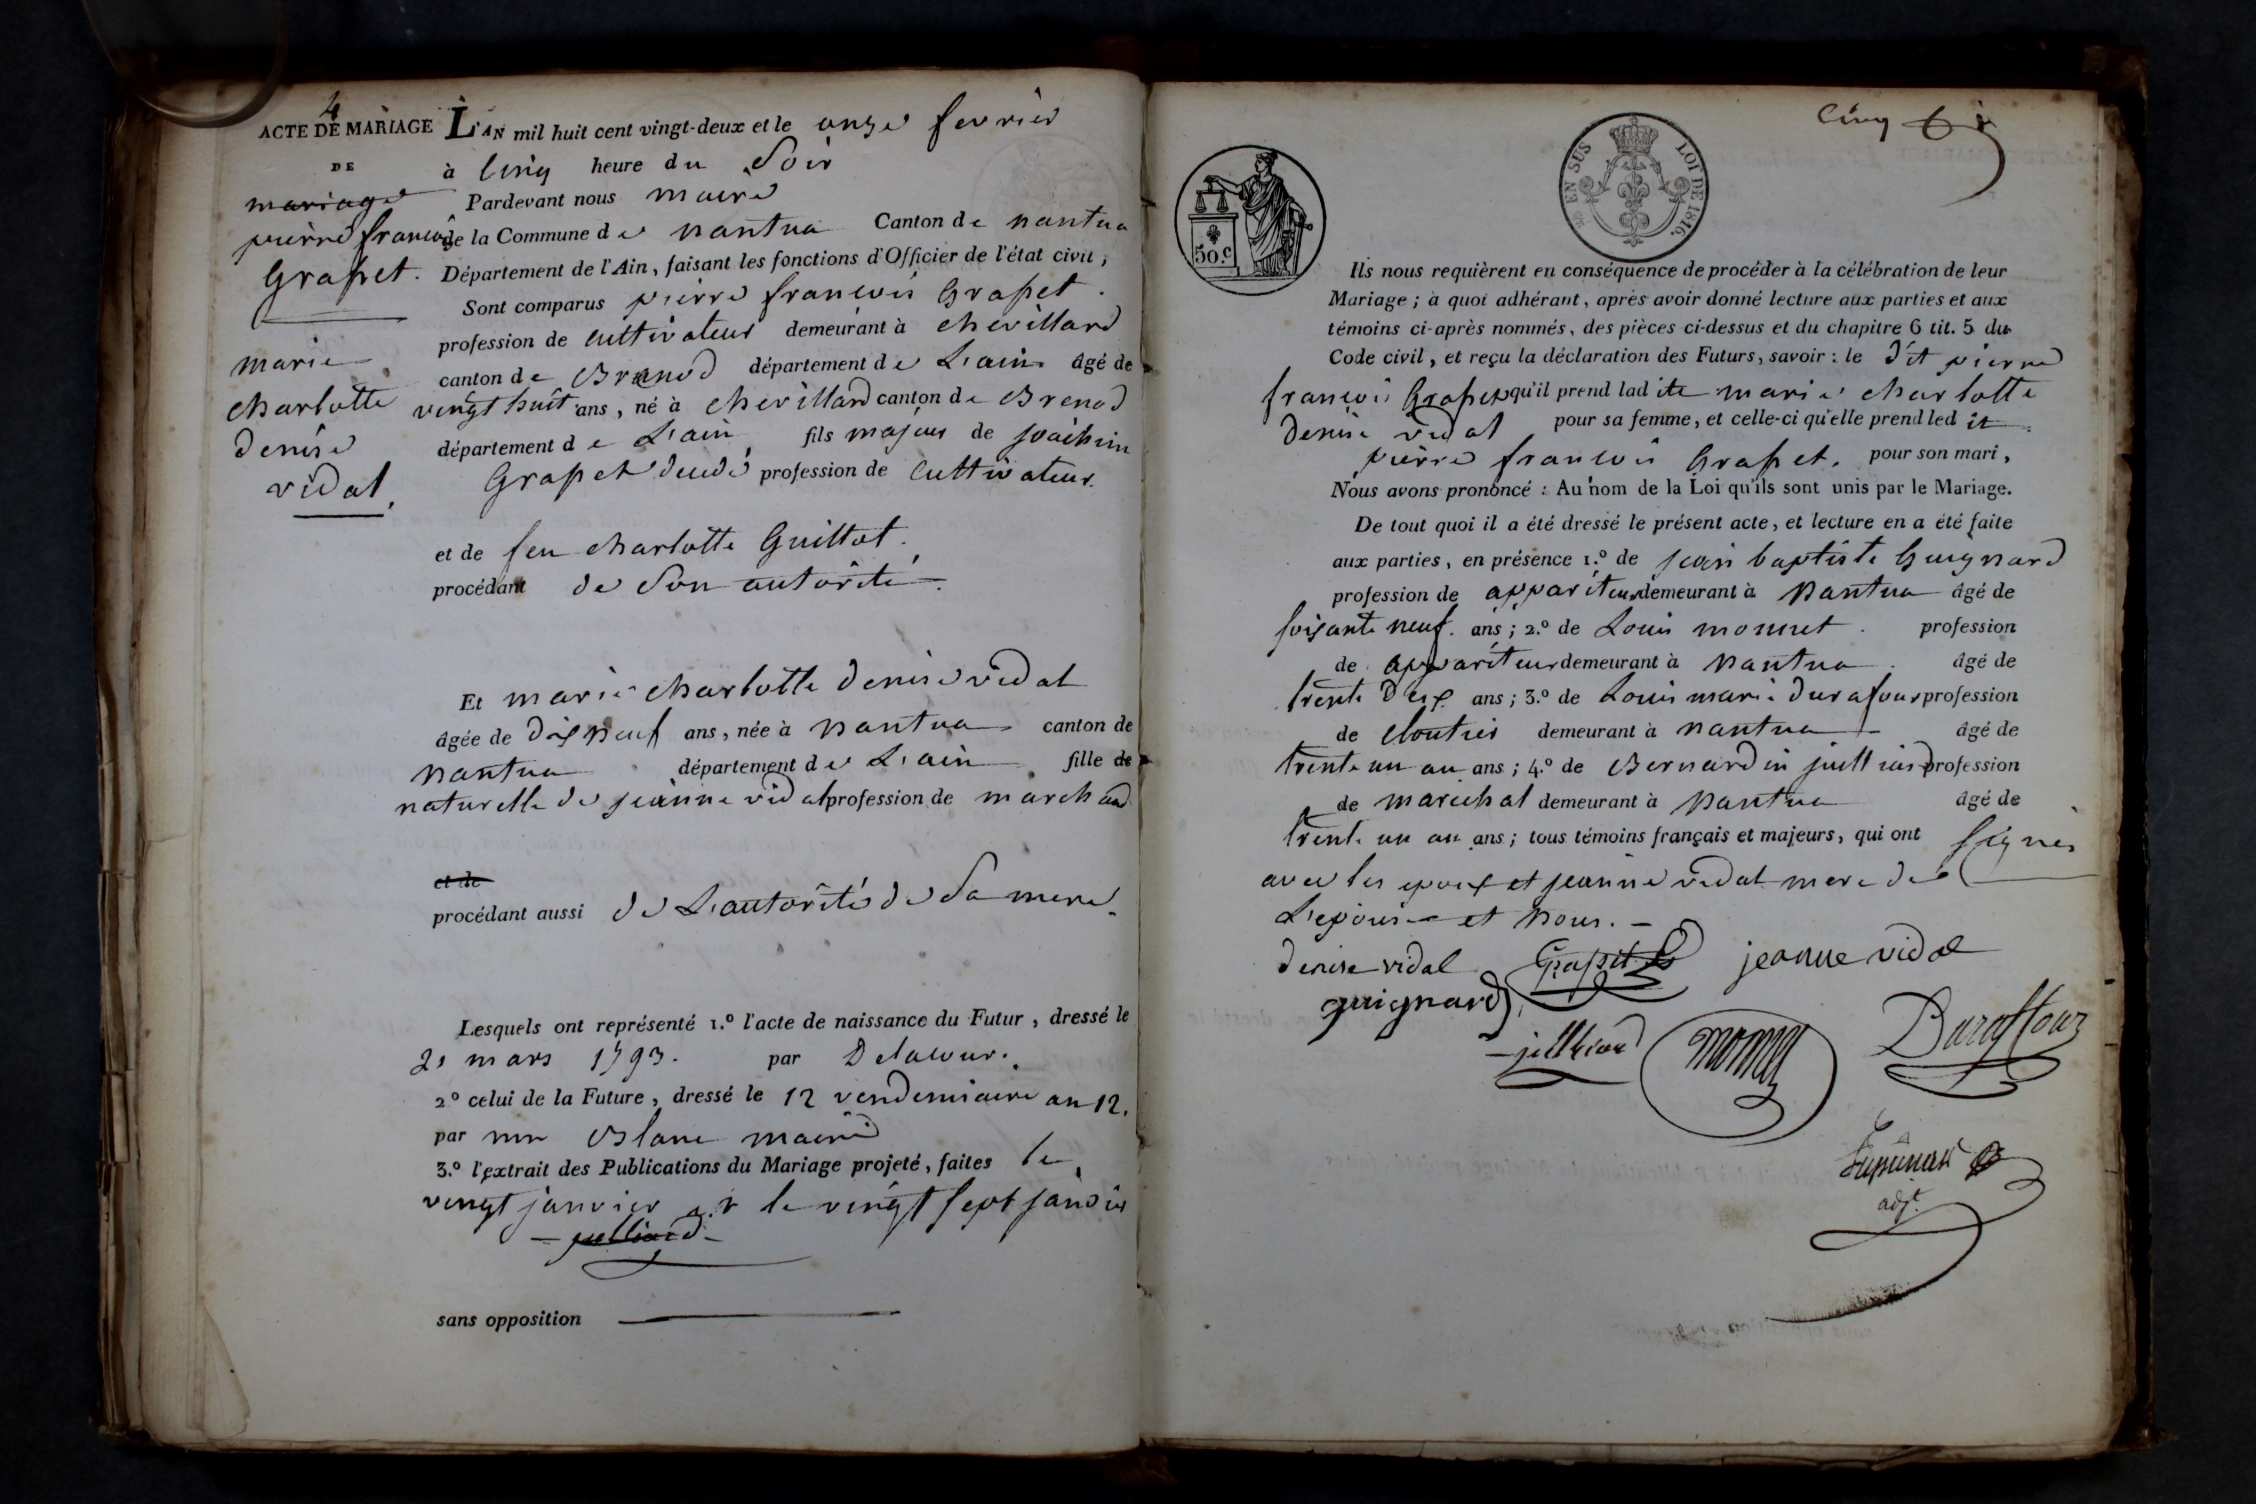 4
ACTE DE MARIAGE
DE
mariage
pierre francois
Grapet.
marie
charlotte
denise
vidal.
L'AN mil huit cent vingt-deux et le onze fevrier
à cinq heure du Soir
Pardevant nous maire
de la Commune de nantua Canton de nantua
Département de l'Ain, faisant les fonctions d'Officier de l'état civil;
Sont comparus pierre francois Grapet.
profession de cultivateur demeurant à chevillard
canton de Brenod département de L'ain âgé de
vingt huit ans, né à chevillard canton de Brenod
département de L'ain fils majeur de joachim
Grapet profession de cultivateur
et de feu charlotte Guillot.
procédant de Son autorité.
Et marie charlotte denise vidal
âgée de dix neuf ans, née à nantua canton de
nantua département de L'ain fille de
naturelle de jeanne vidal profession de marchand
et de
procédant aussi de L'autorité de Sa mere.
Lesquels ont représenté 1.º l'acte de naissance du Futur, dressé le
21 mars 1793. par Delacour.
2º celui de la Future, dressé le 12 vendemiaire an 12.
par mr Blanc maire
3.º l'extrait des Publications du Mariage projeté, faites le
vingt janvier et le vingt sept janvier
jullliard
sans opposition
cinq
50.c
EN SUS LOI DE 1816.
Ils nous requièrent en conséquence de procéder à la célébration de leur
Mariage; à quoi adhérant, après avoir donné lecture aux parties et aux
témoins ci-après nommés, des pièces ci-dessus et du chapitre 6 tit. 5 du
Code civil, et reçu la déclaration des Futurs, savoir: le dit pierre
francois Grapet qu'il prend ladite marie charlotte
denise vidal pour sa femme, et celle-ci qu'elle prend ledit
pierre francois Grapet. pour son mari,
Nous avons prononcé: Au nom de la Loi qu'ils sont unis par le Mariage.
De tout quoi il a été dressé le présent acte, et lecture en a été faite
aux parties, en présence 1.º de jean baptiste Guignard
profession de appariteur demeurant à Nantua âgé de
soixante neuf. ans; 2.º de Louis monnet. profession
de appariteur demeurant à Nantua. âgé de
trente deux ans; 3.º de Louis marie durafour profession
de cloutier demeurant à nantua âgé de
trente un an ans; 4.º de Bernardin juilliard profession
de marechal demeurant à Nantua âgé de
trente un an ans; tous témoins français et majeurs, qui ont signés
avec les epoux et jeanne vidal mere de
L'epouse et Nous.
denise vidal Grapet jeanne vidal
guignard
juilliard monnet Duraffour
adjt.